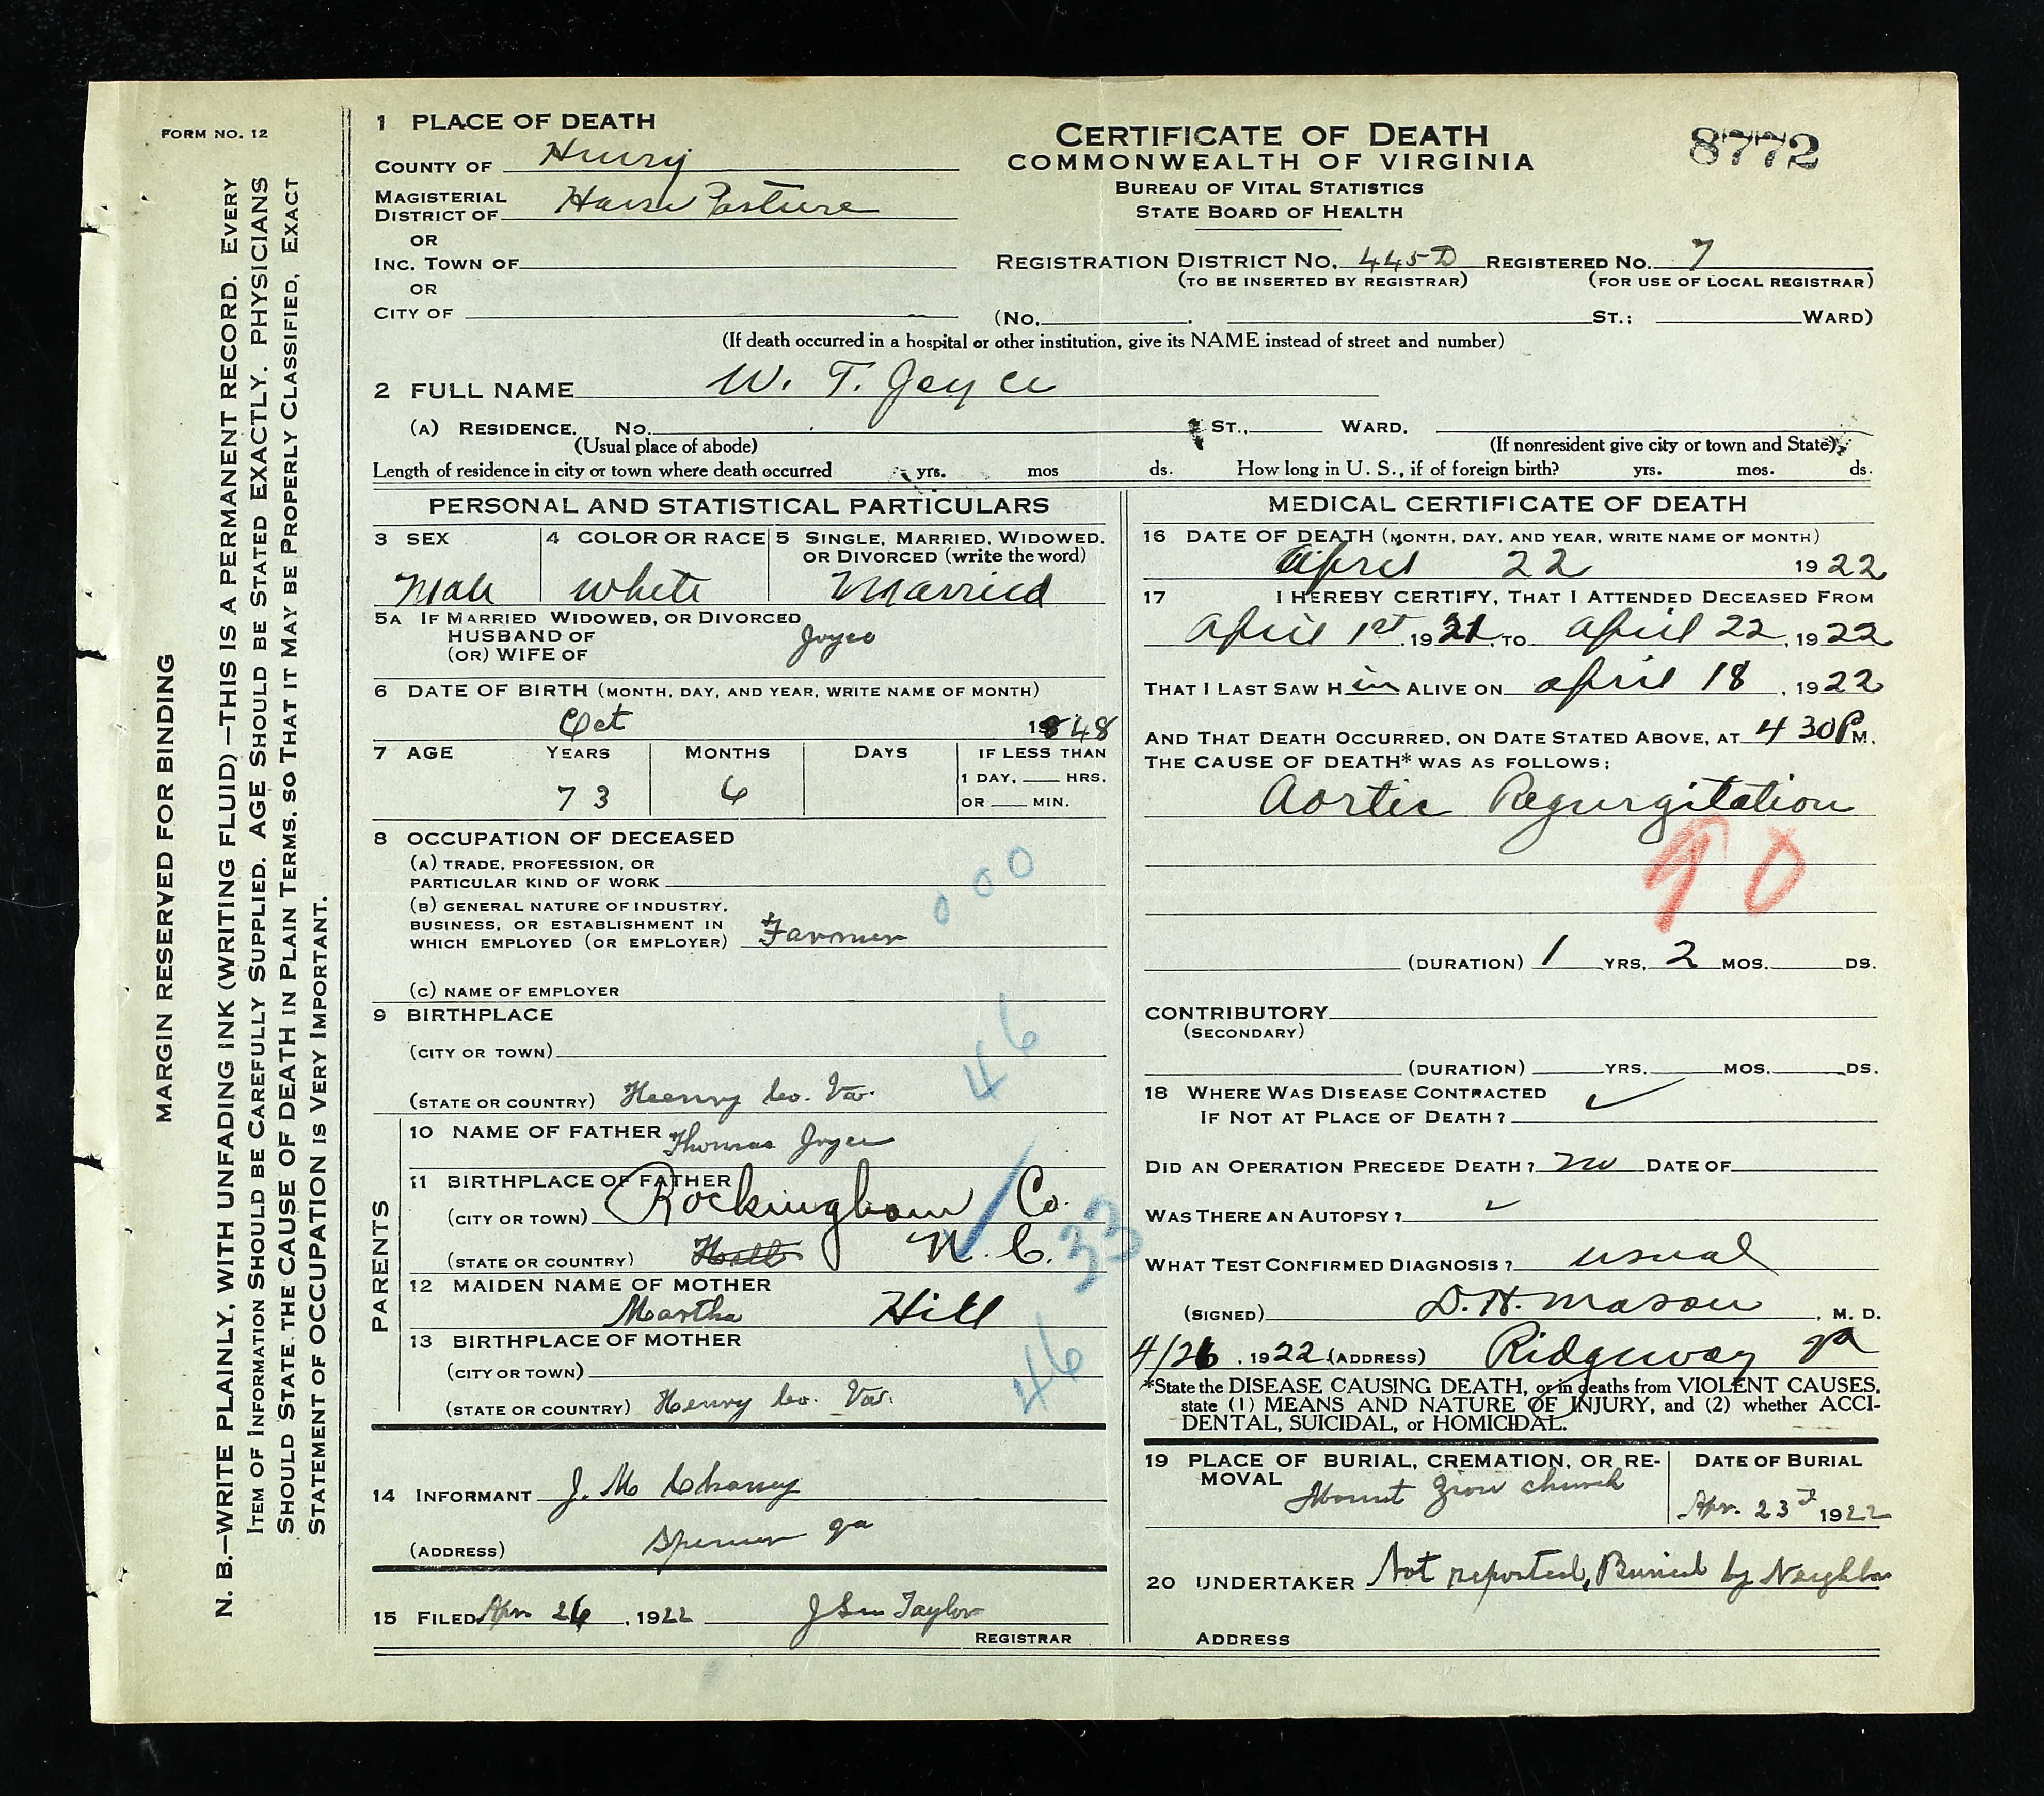 FORM NO. 12
MARGIN RESERVED FOR BINDING
N. B.—WRITE PLAINLY, WITH UNFADING INK (WRITING FLUID)—THIS IS A PERMANENT RECORD. EVERY
ITEM OF INFORMATION SHOULD BE CAREFULLY SUPPLIED. AGE SHOULD BE STATED EXACTLY. PHYSICIANS
SHOULD STATE THE CAUSE OF DEATH IN PLAIN TERMS, SO THAT IT MAY BE PROPERLY CLASSIFIED. EXACT
STATEMENT OF OCCUPATION IS VERY IMPORTANT.
1 PLACE OF DEATH
COUNTY OF Henry
MAGISTERIAL
DISTRICT OF Horse Pasture
OR
INC. TOWN OF
OR
CITY OF
CERTIFICATE OF DEATH
COMMONWEALTH OF VIRGINIA
BUREAU OF VITAL STATISTICS
STATE BOARD OF HEALTH
8772
REGISTRATION DISTRICT NO. 445D REGISTERED NO. 7
(TO BE INSERTED BY REGISTRAR) (FOR USE OF LOCAL REGISTRAR)
(NO. ST.; WARD)
(If death occurred in a hospital or other institution, give its NAME instead of street and number)
2 FULL NAME W. T. Joyce
(A) RESIDENCE. NO. ST., WARD.
(Usual place of abode) (If nonresident give city or town and State)
Length of residence in city or town where death occurred yrs. mos ds. How long in U. S., if of foreign birth? yrs. mos. ds.
PERSONAL AND STATISTICAL PARTICULARS
3 SEX 4 COLOR OR RACE 5 SINGLE, MARRIED, WIDOWED.
OR DIVORCED (write the word)
Male white Married
5A IF MARRIED WIDOWED, OR DIVORCED
HUSBAND OF Joyce
(OR) WIFE OF
6 DATE OF BIRTH (MONTH, DAY, AND YEAR, WRITE NAME OF MONTH)
Oct 1848
7 AGE YEARS MONTHS DAYS IF LESS THAN
1 DAY, HRS.
OR MIN.
73 6
8 OCCUPATION OF DECEASED
(A) TRADE, PROFESSION, OR
PARTICULAR KIND OF WORK
000
(B) GENERAL NATURE OF INDUSTRY,
BUSINESS, OR ESTABLISHMENT IN
WHICH EMPLOYED (OR EMPLOYER) Farmer
(C) NAME OF EMPLOYER
9 BIRTHPLACE
(CITY OR TOWN)
46
(STATE OR COUNTRY) Henry Co. Va.
PARENTS
10 NAME OF FATHER Thomas Joyce
11 BIRTHPLACE OF FATHER
(CITY OR TOWN) Rockingham Co.
(STATE OR COUNTRY) N. C.
33
12 MAIDEN NAME OF MOTHER
Martha Hill
13 BIRTHPLACE OF MOTHER
(CITY OR TOWN)
46
(STATE OR COUNTRY) Henry Co. Va.
14 INFORMANT J. M Chaney
(ADDRESS) Spencer Va
15 FILED Apr. 26, 1922 Taylor
REGISTRAR
MEDICAL CERTIFICATE OF DEATH
16 DATE OF DEATH (MONTH, DAY, AND YEAR, WRITE NAME OF MONTH)
April 22 1922
17 I HEREBY CERTIFY, THAT I ATTENDED DECEASED FROM
April 1st, 1921, TO April 22, 1922
THAT I LAST SAW H im ALIVE ON april 18, 1922
AND THAT DEATH OCCURRED, ON DATE STATED ABOVE, AT 4 30 P M.
THE CAUSE OF DEATH* WAS AS FOLLOWS:
Aortic Regurgitation
90
(DURATION) 1 YRS. 2 MOS. DS.
CONTRIBUTORY
(SECONDARY)
(DURATION) YRS. MOS. DS.
18 WHERE WAS DISEASE CONTRACTED
IF NOT AT PLACE OF DEATH?
DID AN OPERATION PRECEDE DEATH? no DATE OF
WAS THERE AN AUTOPSY?
WHAT TEST CONFIRMED DIAGNOSIS? usual
(SIGNED) D. H. Mason, M. D.
4/26, 1922 (ADDRESS) Ridgeway Va
*State the DISEASE CAUSING DEATH, or in deaths from VIOLENT CAUSES,
state (1) MEANS AND NATURE OF INJURY, and (2) whether ACCI-
DENTAL, SUICIDAL, or HOMICIDAL.
19 PLACE OF BURIAL, CREMATION, OR RE-
MOVAL Mount Zion church
DATE OF BURIAL
Apr. 23d 1922
20 UNDERTAKER Not reported, Buried by Neighbor
ADDRESS